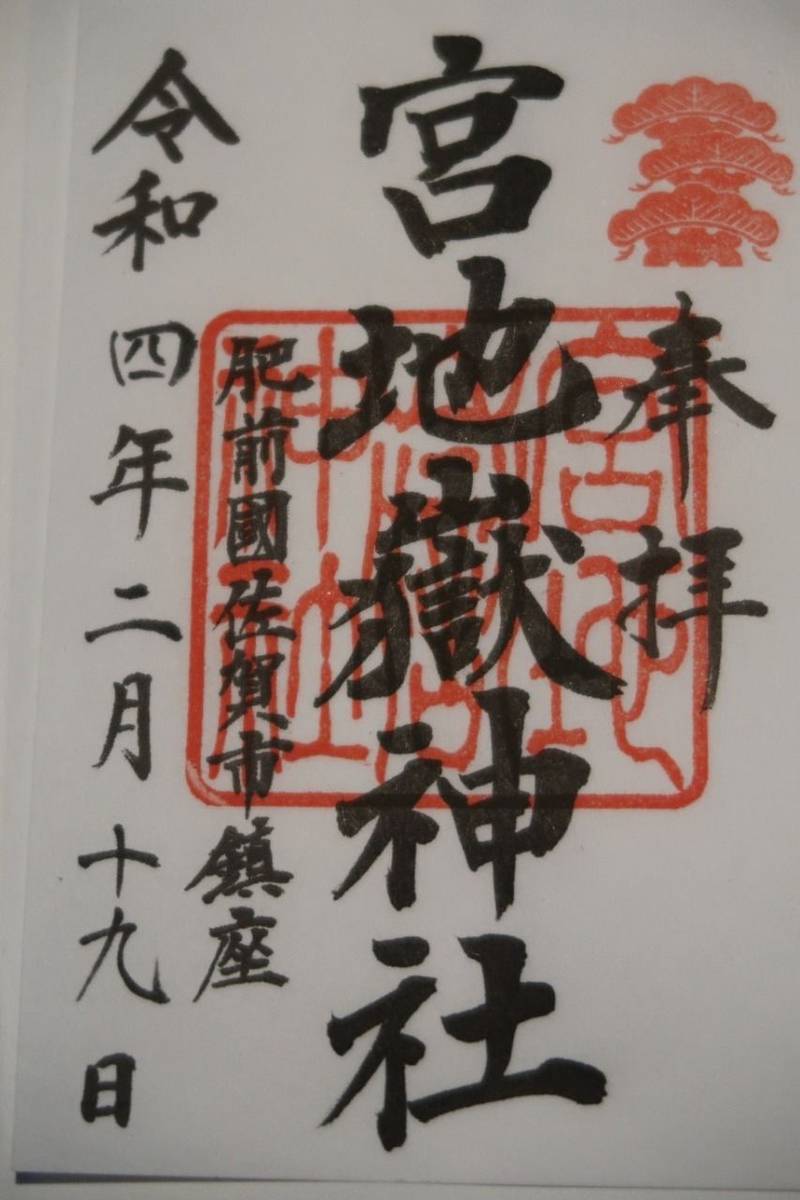 奉拝
宮地嶽神社
肥前國佐賀市鎮座
令和四年二月十九日
宮地嶽神社